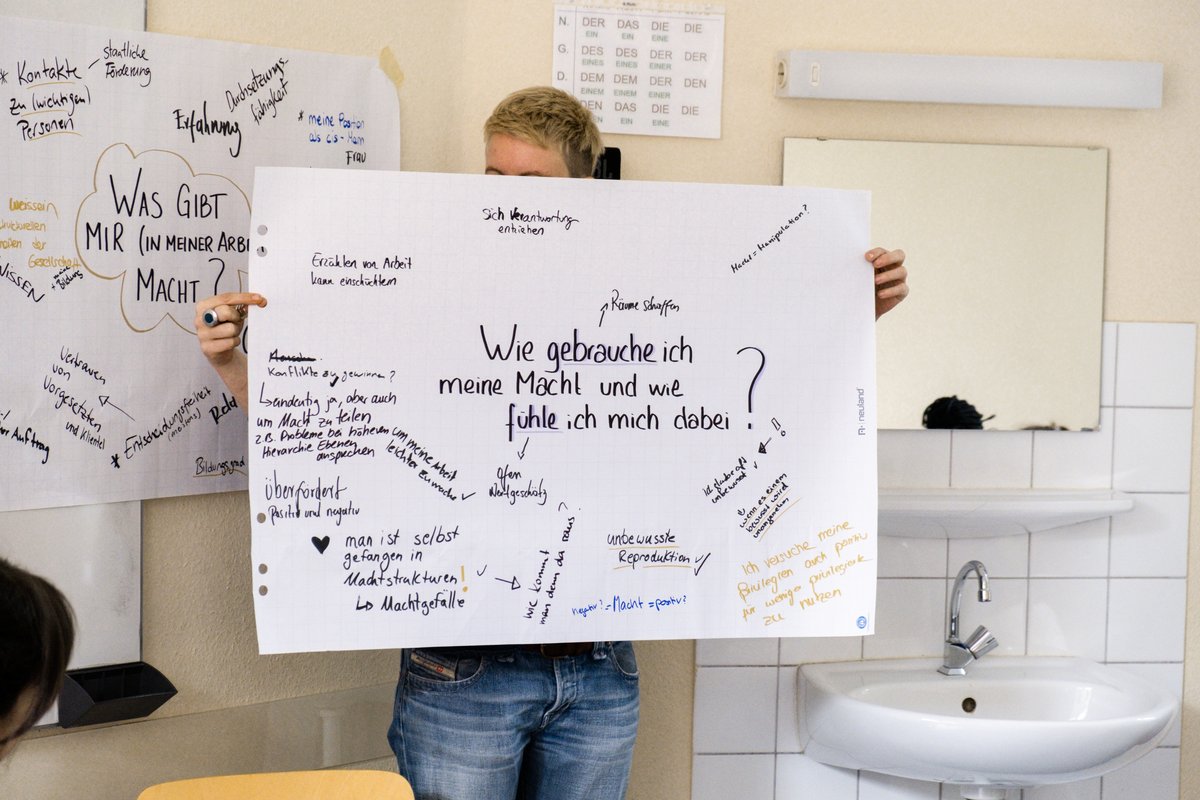 * Kontakte
zu (wichtigen)
Personen
staatliche
Förderung
Erfahrung
Durchsetzungs-
fähigkeit
* meine Position
als cis-
Frau
WAS GIBT
MIR (IN MEINER ARBE
MACHT?
strukturellen
der
Gesellschaft
WISSEN
Bildung
Vertrauen
von
Vorgesetzten
und Klientel
Auftrag
* Entscheidungsfreiheit
Geld
Bildungsgrad
N. DER DAS DIE DIE
EIN EIN EINE
G. DES DES DER DER
EINES EINES EINER
D. DEM DEM DER DEN
EINEM EINEM EINER
DEN DAS DIE DIE
EIN EINE
Sich Verantwortung
entziehen
Macht = Manipulation?
Erzählen von Arbeit
kann einschüchtern
Räume schaffen
Wie gebrauche ich
meine Macht und wie
fühle ich mich dabei?
Konflikte zu gewinnen?
eindeutig ja, aber auch
um Macht zu teilen
z.B. Probleme bei höheren
Hierarchie Ebenen
ansprechen
um meine Arbeit
leichter zu machen ✓
Wertgeschätz
überfordert
Positiv und negativ
♥ man ist selbst
gefangen in
Machtstrukturen!
↳ Machtgefälle
wie kommt
man denn da raus?
unbewusste
Reproduktion ✓
negativ? = Macht = positiv?
Ich glaube oft
unbewusst ✓
wenn es einem
bewusst wird
unangenehm
!
Ich versuche meine
Privilegien auch positiv
für weniger privilegierte
zu nutzen
neuland